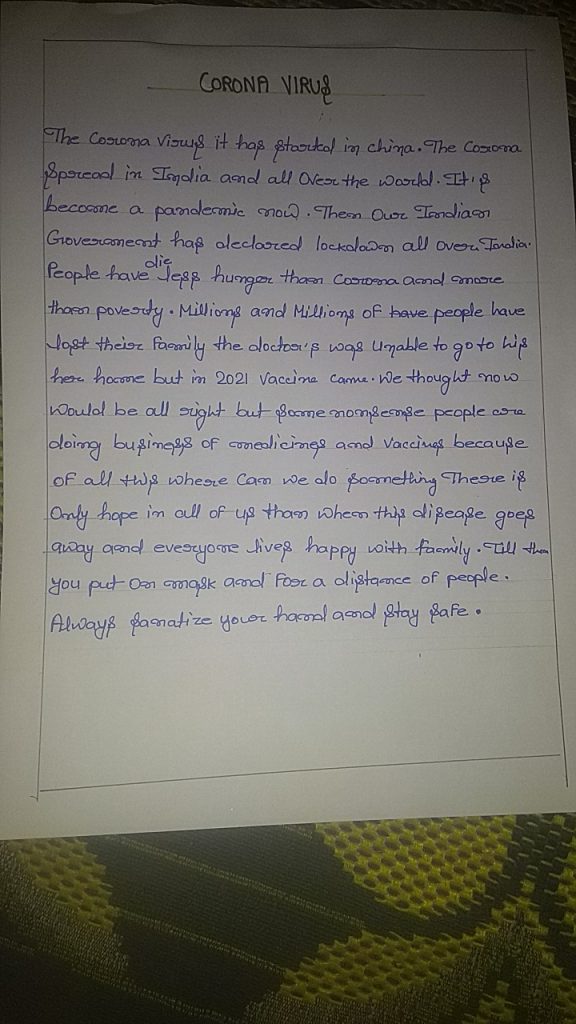 CORONA VIRUS
The Corona Virus it has started in china. The Corona
Spread in India and all Over the world. It's
become a pandemic now. Then Our Indian
Government has declared lockdown all over India.
die
People have less hunger than Corona and more
than poverty. Millions and Millions of have people have
lost their family the doctor's was Unable to go to his
her home but in 2021 Vaccine came. We thought now
would be all right but some nonsense people are
doing business of medicines and Vaccines because
of all this where Can we do something There is
Only hope in all of us than when this disease goes
away and everyone lives happy with family. Till then
you put On mask and For a distance of people.
Always sanatize your hand and stay safe.